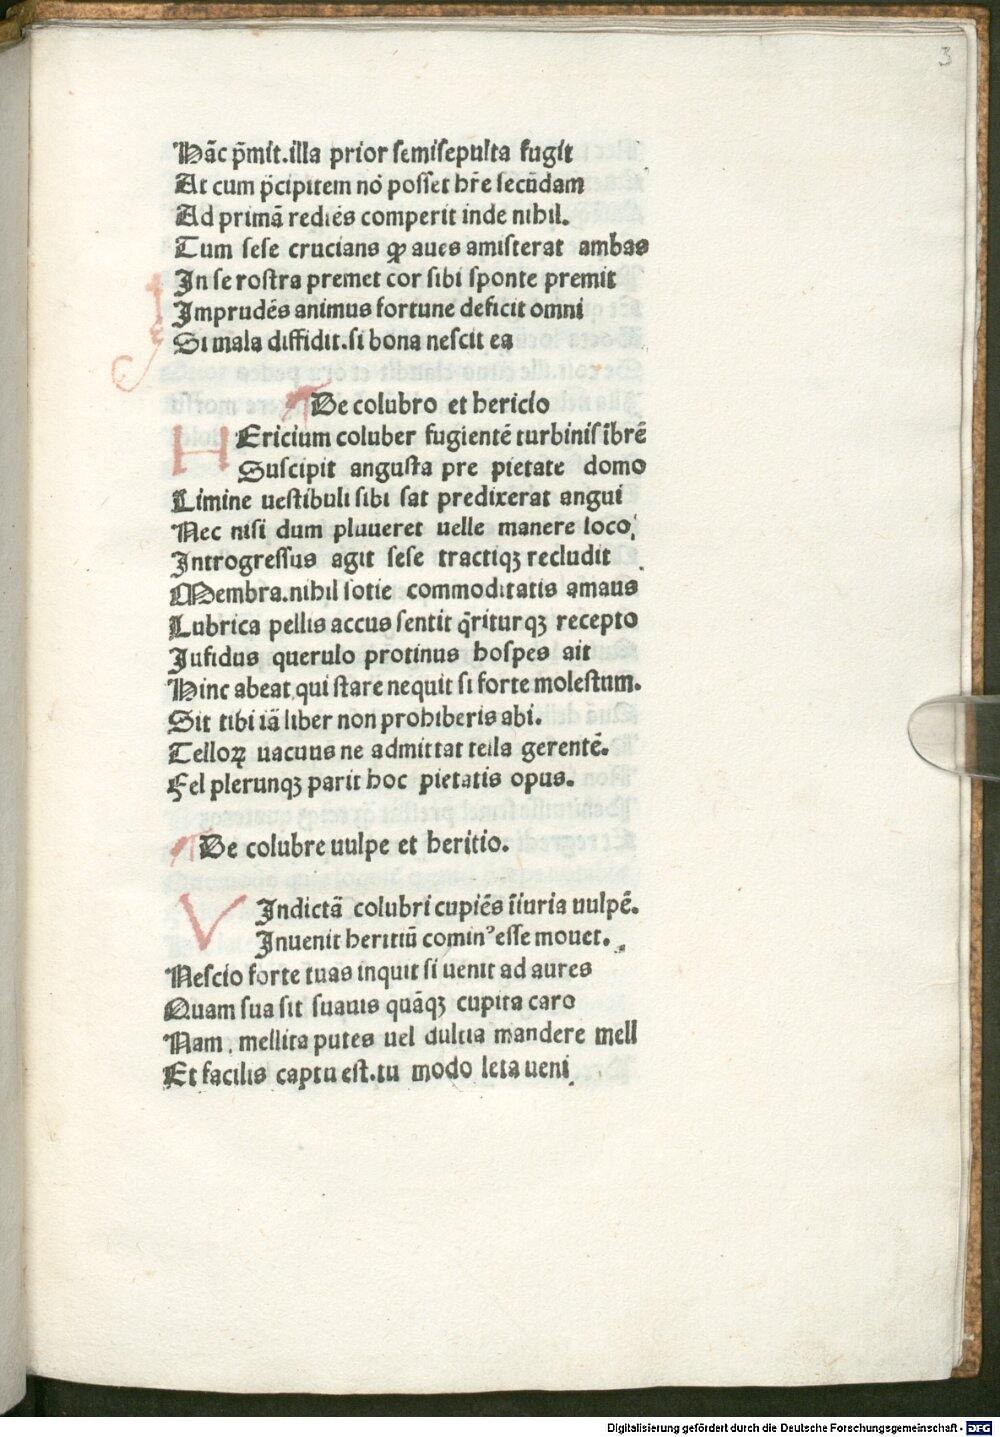 3
Hãc p̃mit.illa prior semisepulta fugit
At cum p̃cipitem nõ posset hr̃e secũdam
Ad primã rediẽs comperit inde nihil.
Tum sese crucians ꝙ aues amiserat ambas
In se rostra premet cor sibi sponte premit
Imprudẽs animus fortune deficit omni
Si mala diffidit.si bona nescit ea
De colubro et hericio
HEricium coluber fugientẽ turbinis ĩbrẽ
Suscipit angusta pre pietate domo
Limine uestibuli sibi sat predixerat angui
Nec nisi dum pluueret uelle manere loco
Introgressus agit sese tractiqꝫ recludit
Membra.nihil sotie commoditatis amaus
Lubrica pellis accus sentit q̃riturqꝫ recepto
Iufidus querulo protinus hospes ait
Hinc abeat qui stare nequit si forte molestum.
Sit tibi iã liber non prohiberis abi.
Telloꝝ uacuus ne admittat teila gerentẽ.
Fel plerunqꝫ parit hoc pietatis opus.
De colubre uulpe et heritio.
VIndictã colubri cupiẽs ĩiuria uulpẽ.
Inuenit heritiũ cominꝰ esse mouet.
Nescio forte tuas inquit si uenit ad aures
Quam sua sit suauis quãqꝫ cupita caro
Nam mellita putes uel dultia mandere mell
Et facilis captu est.tu modo leta ueni
Digitalisierung gefördert durch die Deutsche Forschungsgemeinschaft - DFG